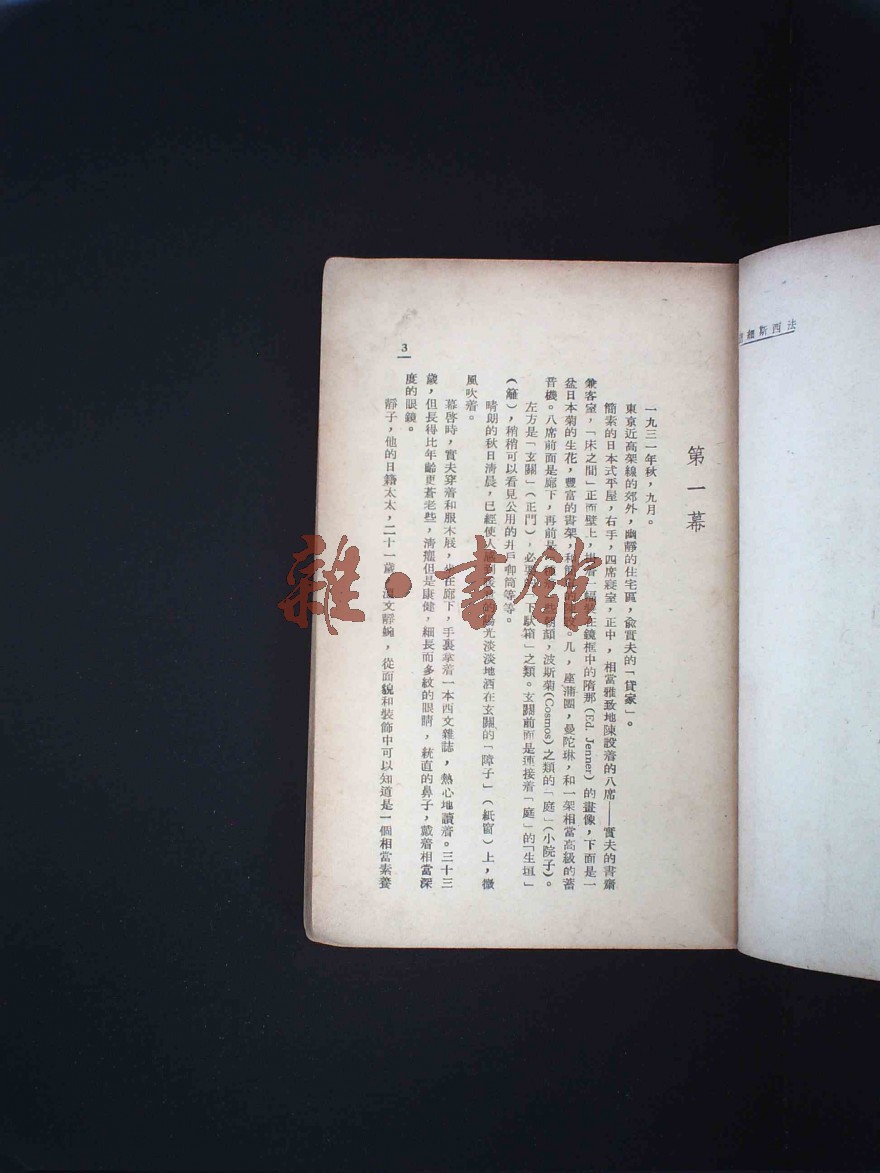 法西斯細
第一幕
一九三一年秋，九月。
東京近高架線的郊外，幽靜的住宅區，兪實夫的「貸家」。
簡素的日本式平屋，右手，四席寢室，正中，相當雅致地陳設着的八席——實夫的書齋
兼客室，「床之間」正面壁上，掛着一幅 在鏡框中的隋那（Ed. Jenner）的畫像，下面是一
盆日本菊的生花，豐富的書架，和 几，座蒲團，曼陀琳，和一架相當高級的蓄
音機。八席前面是廊下，再前是 些朝顏，波斯菊（Cosmos）之類的「庭」（小院子）。
左方是「玄關」（正門），必要的「下駄箱」之類。玄關前面是連接着「庭」的「生垣」
（籬），稍稍可以看見公用的井戶 筒等等。
晴朗的秋日淸晨，已經使人感到 的陽光淡淡地洒在玄關的「障子」（紙窗）上，微
風吹着。
幕啓時，實夫穿着和服木屐，坐在廊下，手裏拿着一本西文雜誌，熱心地讀着。三十三
歲，但長得比年齡更蒼老些，淸癯但是康健，細長而多紋的眼睛，統直的鼻子，戴着相當深
度的眼鏡。
靜子，他的日籍太太，二十一歲， 文靜婉，從面貌和裝飾中可以知道是一個相當素養
3
雜·書館